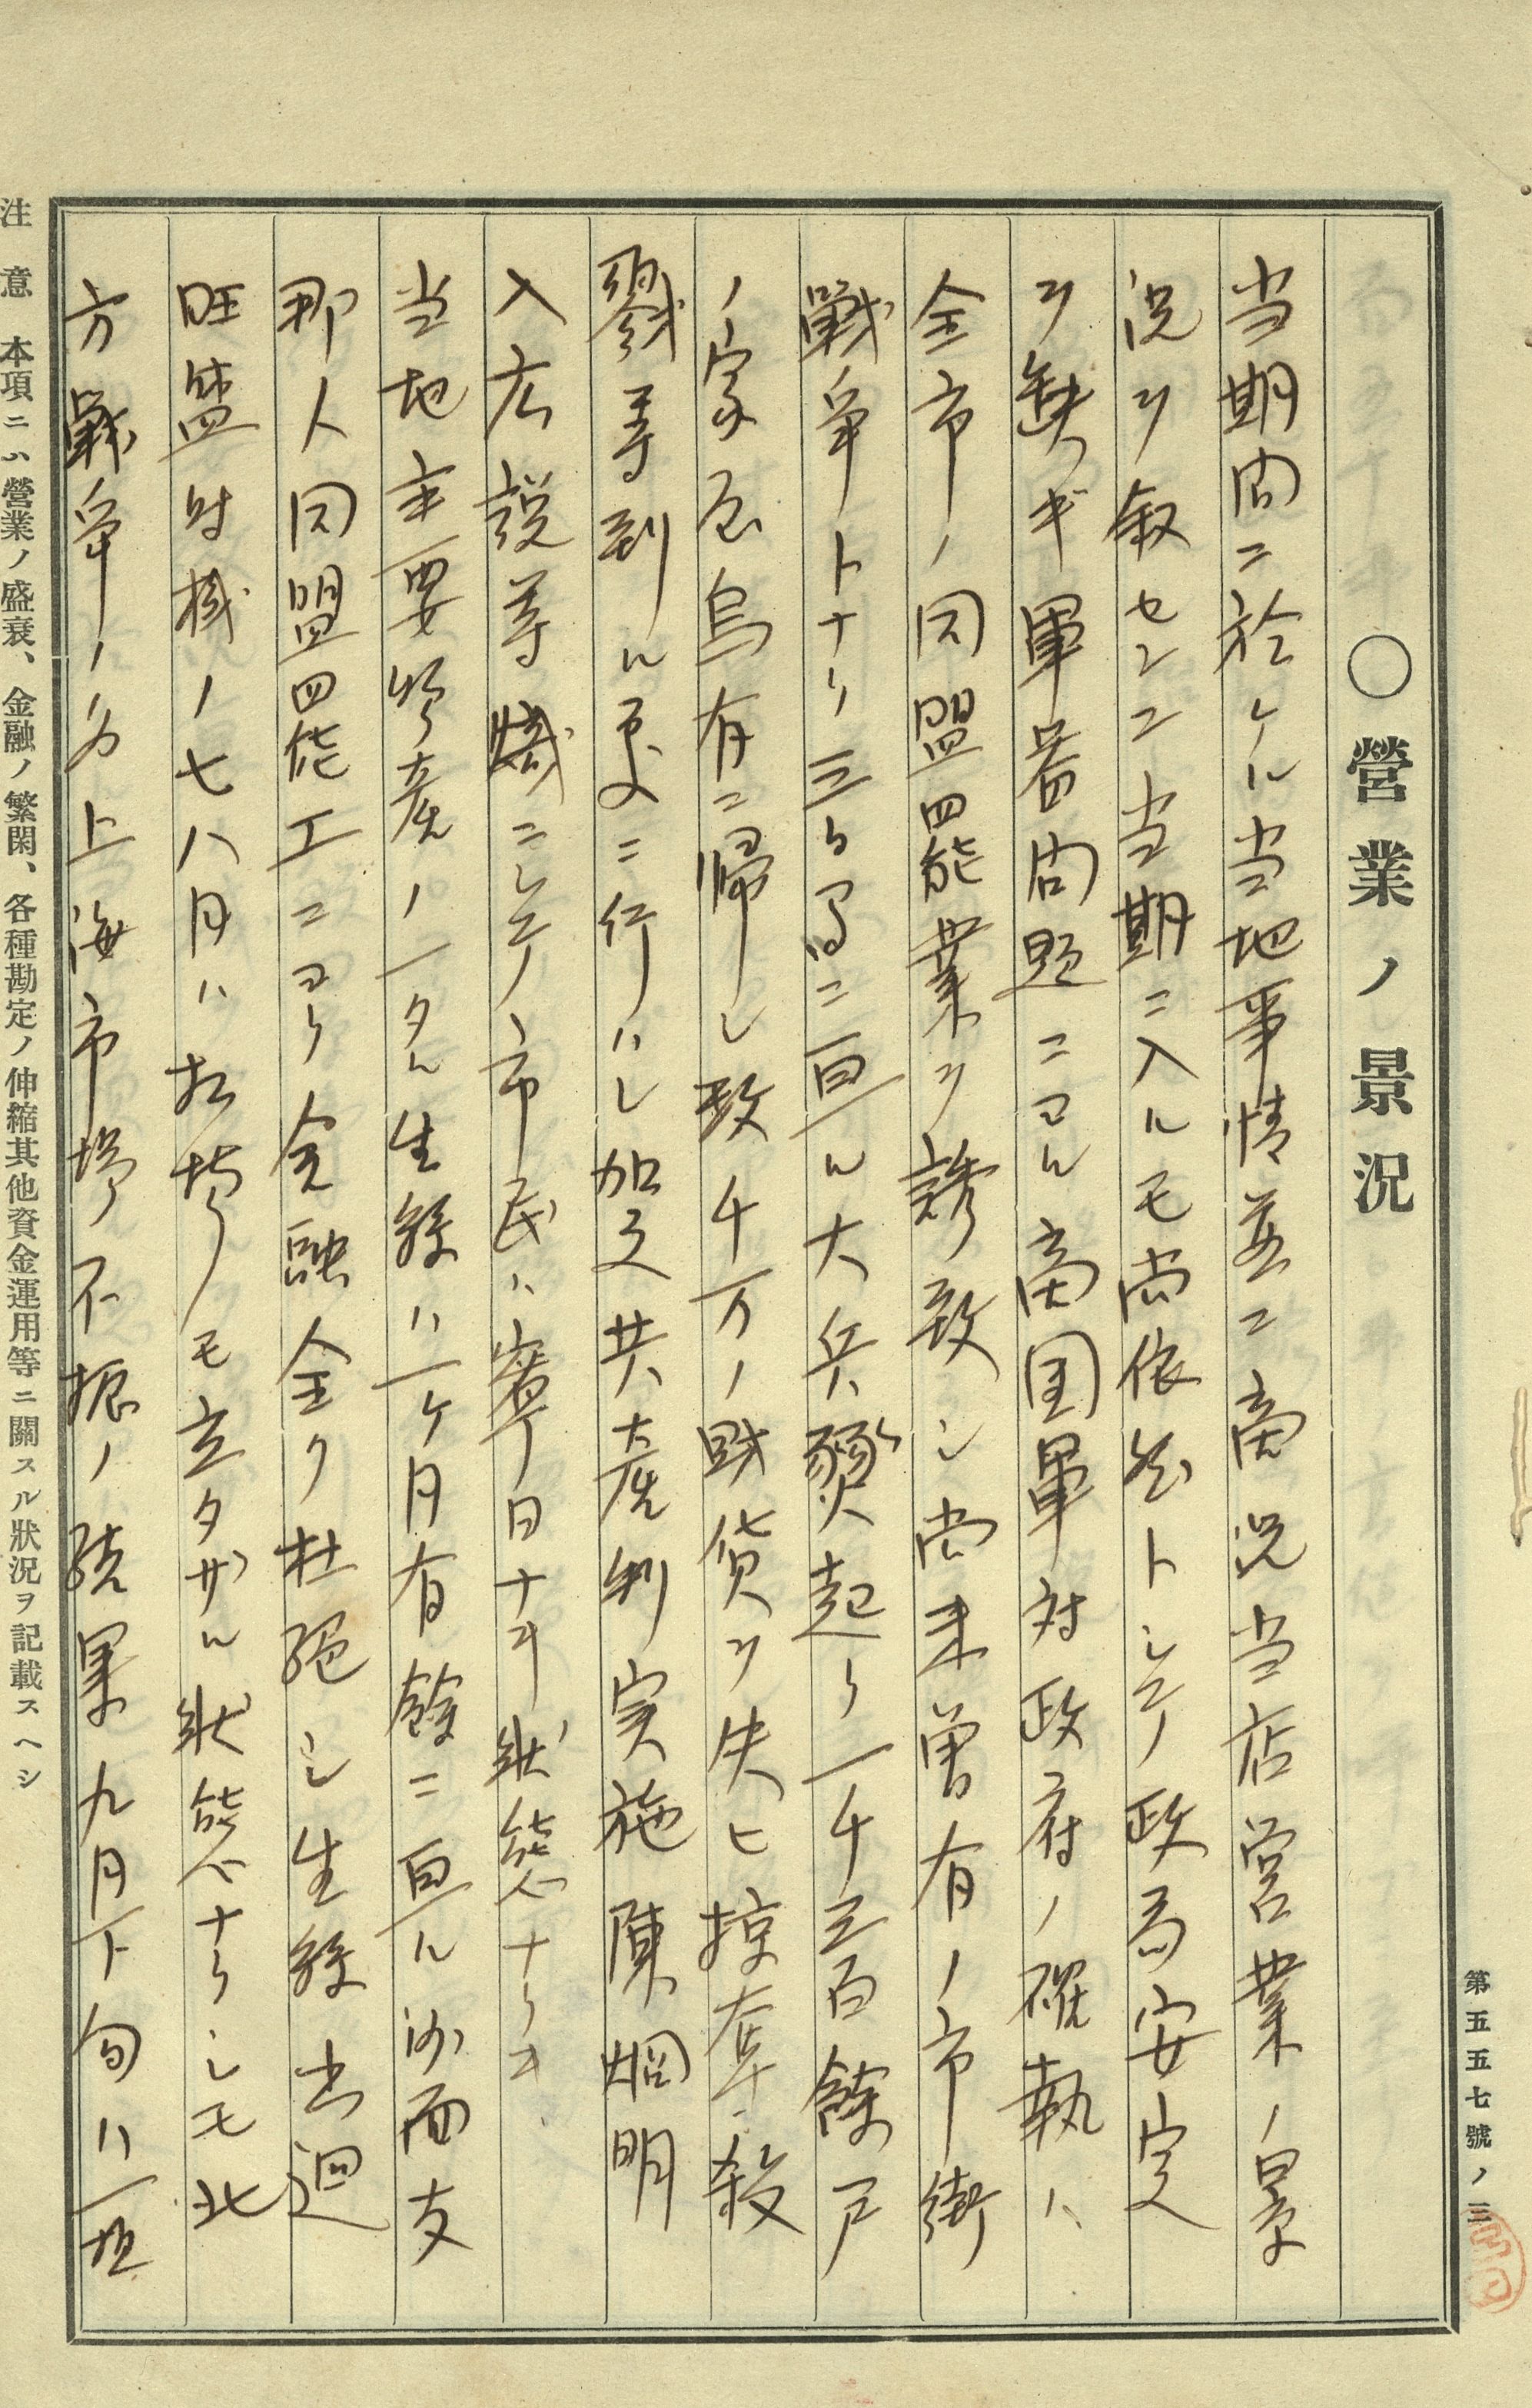 第五五七號ノ三
○營業ノ景況
当期間ニ於ケル当地事情並ニ商況当店営業ノ景
況ヲ叙センニ当期ニ入ルモ尚依然トシテ政局安定
ヲ缺ギ軍器問題ニヨル商団軍対政府ノ確執ハ
全市ノ同盟罷業ヲ誘致シ尚未曽有ノ市街
戦争トナリ三日間ニ亘ル大兵燹起リ一千三百餘戸
ノ家屋烏有ニ帰シ数千万ノ財貨ヲ失ヒ掠奪、殺
戮等到ル処ニ行ハレ加之共産制実施陳烱明
入広説等熾ニシテ市民ハ寧日ナキ状態ナリキ、
当地主要物産ノ一タル生絲ハ一ケ月有餘ニ亘ル沙面支
那人同盟罷工ニヨリ金融全ク杜絶シ生絲出廻
旺盛時機ノ七八月ハ相場モ立タザル状態ナリシモ北
方戦争ノ為上海市場不振ノ結果九月下旬ハ一班
注意 本項ニハ營業ノ盛衰、金融ノ繁閑、各種勘定ノ伸縮其他資金運用等ニ關スル狀況ヲ記載スヘシ